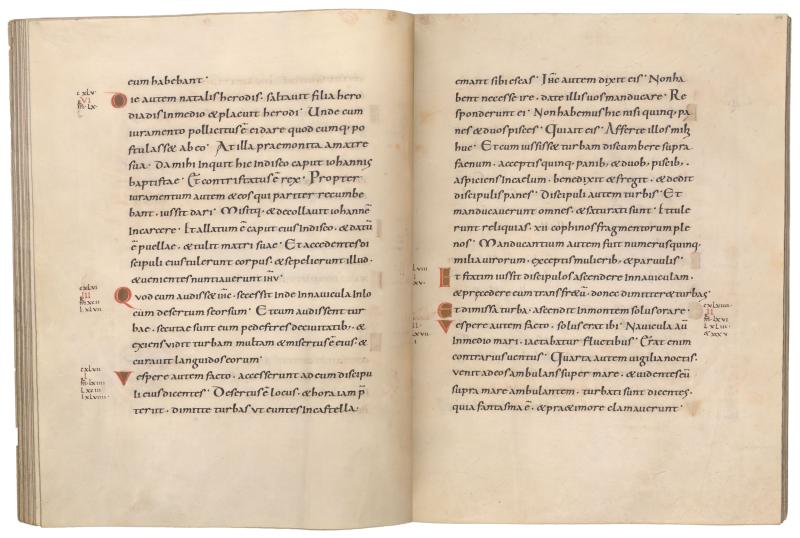 eum habebant·
cxlv
VI
Die autem natalis herodis· saltauit filia hero
diadis inmedio & placuit herodi· Unde cum
iuramento pollicitus ē ei dare quodcumq; po
stulass& ab eo· At illa praemonita amatre
sua· Da mihi inquit hic indisco caput iohannis
baptistae· Et contristatus ē rex· Propter
iuramentum autem & eos qui pariter recumbe
bant· iussit dari· Misitq; & decollauit iohannē
incarcere· Et allatum ē caput eius indisco· & datū
ē puellae· & tulit matri suae· Et accedentes di
scipuli eius tulerunt corpus· & sepelierunt illud·
& uenientes nuntiauerunt ihū·
cxlvi
III
Quod cum audiss& ihc̄· secessit inde innauicula inlo
cum desertum seorsum· Et cum audissent tur
bae· secutae sunt eum pedestres deciuitatib;· &
exiens uidit turbam multam & misertus ē eius· &
curauit languidos eorum·
cxlvii
I
Vespere autem facto· accesserunt ad eum discipu
li eius dicentes· Desertus ē locus· & hora iam p̄
teriit· dimitte turbas ut euntes incastella·
emant sibi escas· Ihc̄ autem dixit eis· Non ha
bent necesse ire· date illis uos manducare· Re
sponderunt ei· Non habemus hic nisi quinq; pa
nes & duos pisces· Qui ait eis· Afferte illos mihi
huc· Et cum iussiss& turbam discumbere supra
faenum· acceptis quinq; panib; & duob; piscib;·
aspiciens incaelum· benedixit & fregit· & dedit
discipulis panes· Discipuli autem turbis· Et
manducauerunt omnes· & saturati sunt· Et tule
runt reliquias· xii cophinos fragmentorum ple
nos· Manducantium autem fuit numerus quinq;
milia uirorum· exceptis mulierib; & paruulis·
Et statim iussit discipulos ascendere innauiculam·
& praecedere eum trans fr&ū· donec dimitter& turbas·
Et dimissa turba· ascendit inmontem solus orare·
cxlviiii
II
Vespere autem facto· solus erat ibi· Nauicula aū
inmedio mari· iactabatur fluctibus· Erat enim
contrarius uentus· Quarta autem uigilia noctis·
uenit ad eos ambulans super mare· & uidentes eū
supra mare ambulantem· turbati sunt dicentes·
quia fantasma ē· & prae timore clamauerunt·